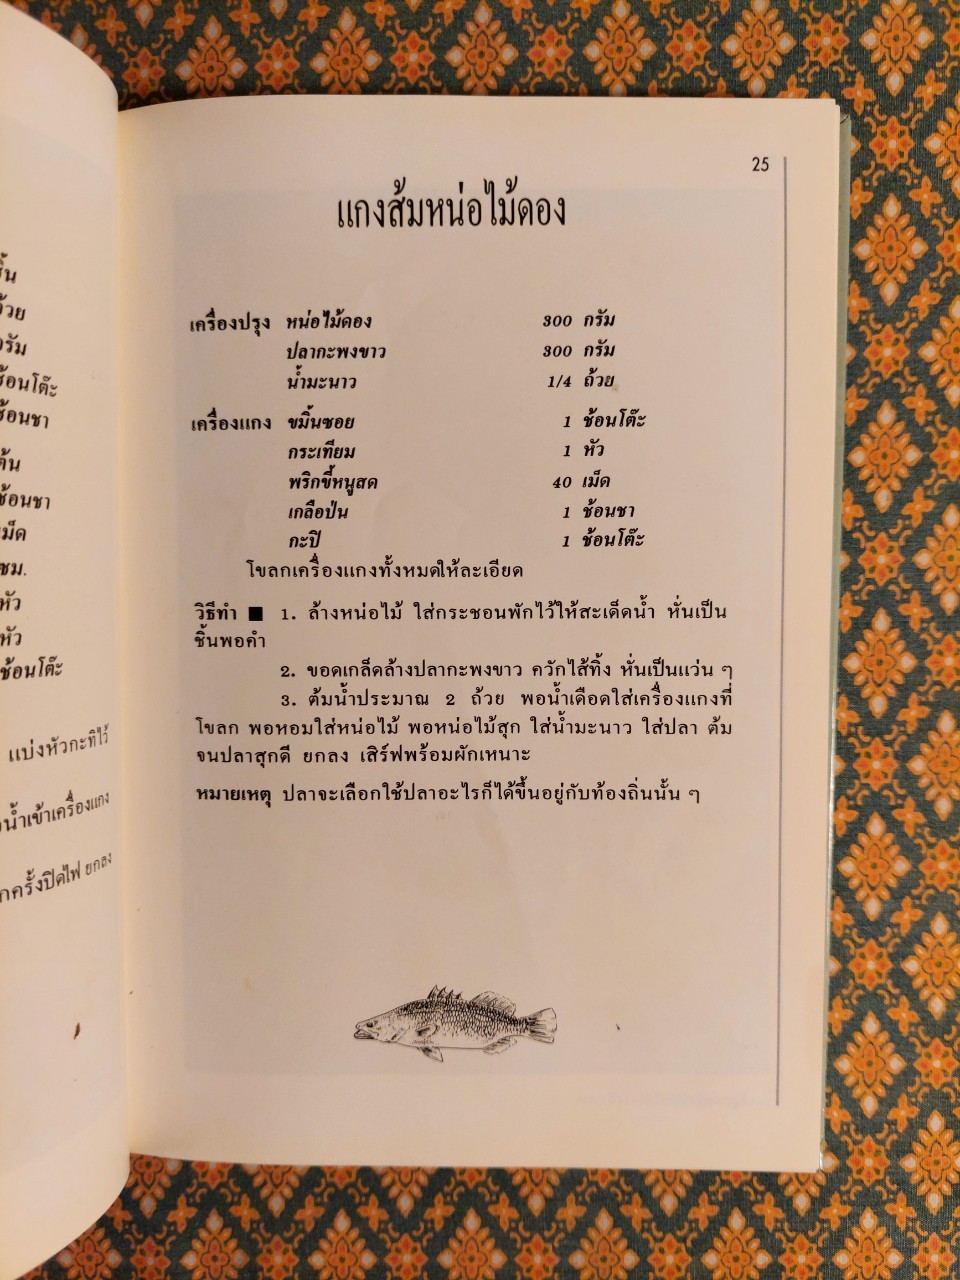 25
แกงส้มหน่อไม้ดอง
เครื่องปรุง หน่อไม้ดอง 300 กรัม
ปลากะพงขาว 300 กรัม
น้ำมะนาว 1/4 ถ้วย
เครื่องแกง ขมิ้นซอย 1 ช้อนโต๊ะ
กระเทียม 1 หัว
พริกขี้หนูสด 40 เม็ด
เกลือป่น 1 ช้อนชา
กะปิ 1 ช้อนโต๊ะ
โขลกเครื่องแกงทั้งหมดให้ละเอียด
วิธีทำ ■ 1. ล้างหน่อไม้ ใส่กระชอนพักไว้ให้สะเด็ดน้ำ หั่นเป็น
ชิ้นพอคำ
2. ขอดเกล็ดล้างปลากะพงขาว ควักไส้ทิ้ง หั่นเป็นแว่น ๆ
3. ต้มน้ำประมาณ 2 ถ้วย พอน้ำเดือดใส่เครื่องแกงที่
โขลก พอหอมใส่หน่อไม้ พอหน่อไม้สุก ใส่น้ำมะนาว ใส่ปลา ต้ม
จนปลาสุกดี ยกลง เสิร์ฟพร้อมผักเหนาะ
หมายเหตุ ปลาจะเลือกใช้ปลาอะไรก็ได้ขึ้นอยู่กับท้องถิ่นนั้น ๆ
ช้อนโต๊ะ
ช้อนชา
ช้อนชา
ซม.
หัว
หัว
ช้อนโต๊ะ
แบ่งหัวกะทิไว้
น้ำเข้าเครื่องแกง
กครั้งปิดไฟ ยกลง